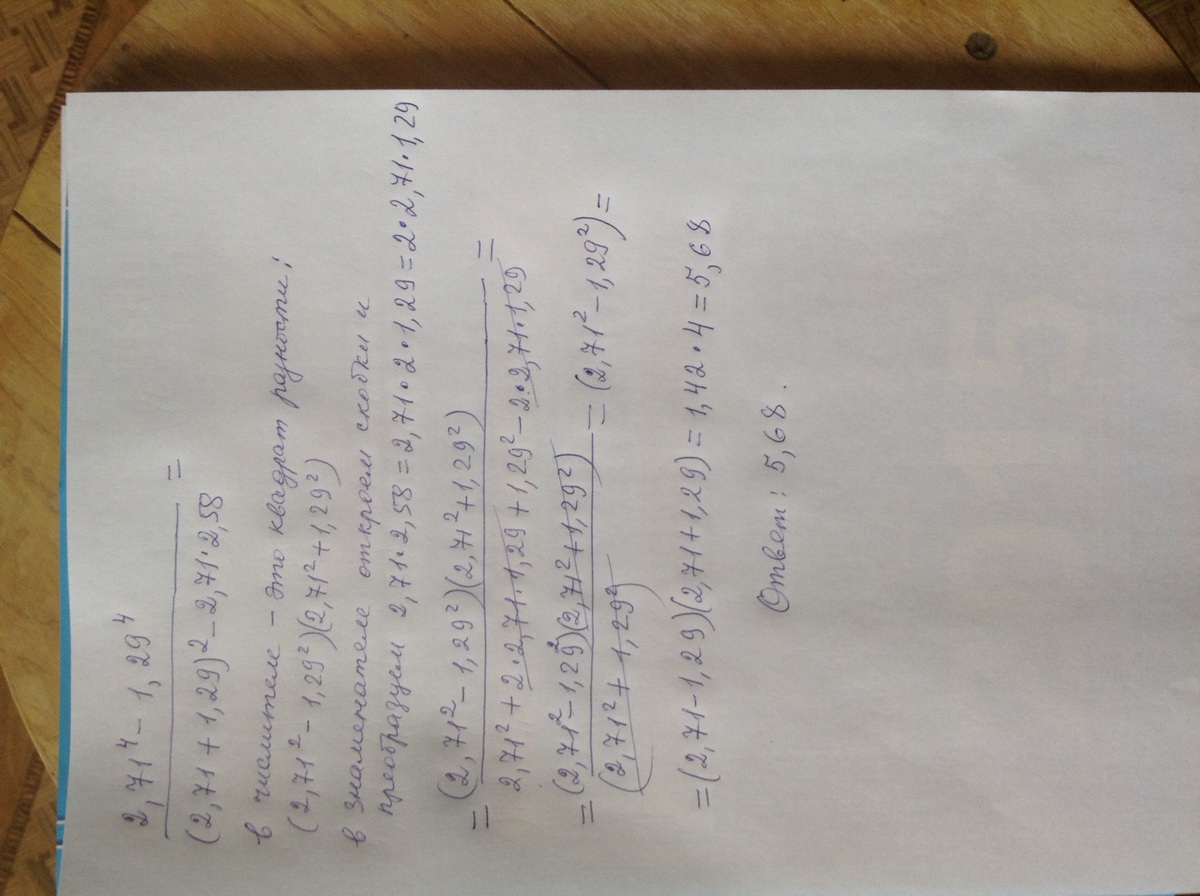 2,71⁴ − 1,29⁴
(2,71 + 1,29)² − 2,71·2,58 =
в числителе – это квадрат разности:
(2,71² − 1,29²)(2,71² + 1,29²)
в знаменателе откроем скобки и
преобразуем 2,71·2,58 = 2,71·2·1,29 = 2·2,71·1,29
= (2,71² − 1,29²)(2,71² + 1,29²)
2,71² + 2·2,71·1,29 + 1,29² − 2·2,71·1,29 =
= (2,71² − 1,29²)(2,71² + 1,29²)
(2,71² + 1,29² = (2,71² − 1,29²) =
= (2,71 − 1,29)(2,71 + 1,29) = 1,42·4 = 5,68
Ответ: 5,68.